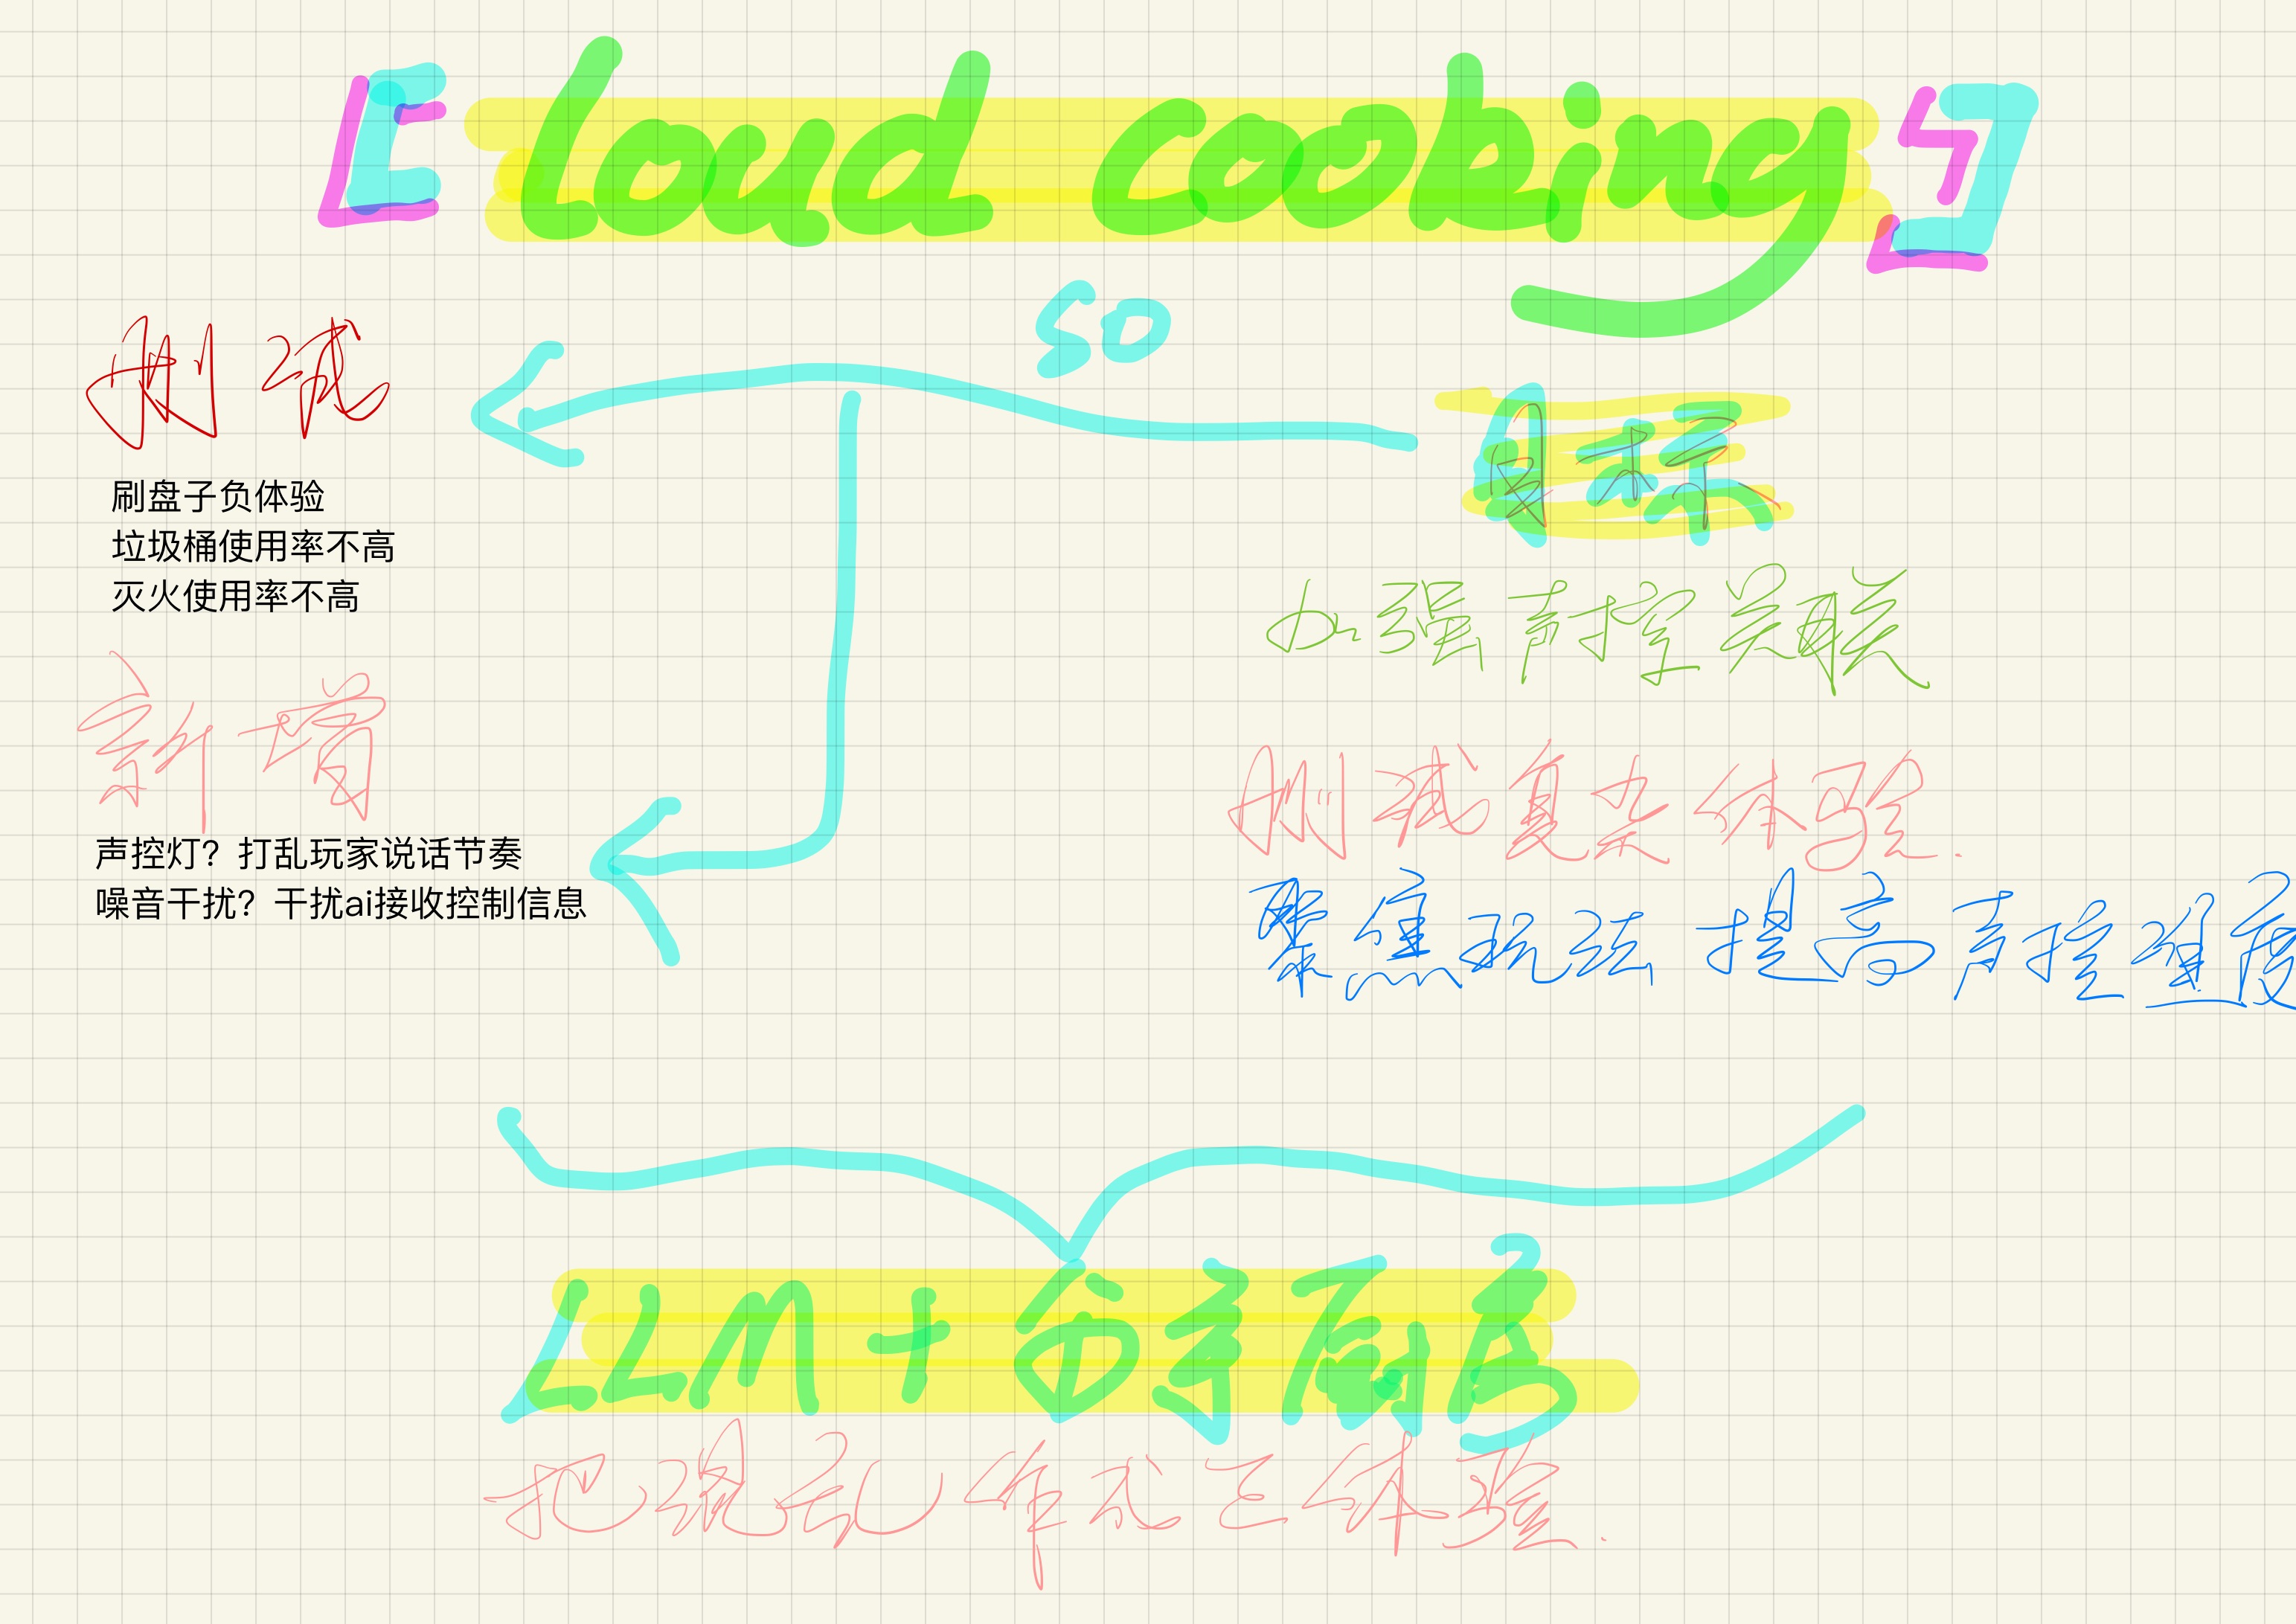 [Loud cooking]
so
删减
刷盘子负体验
垃圾桶使用率不高
灭火使用率不高
新增
声控灯?打乱玩家说话节奏
噪音干扰?干扰ai接收控制信息
目标
加强声控关联
删减复杂体验.
聚焦玩法 提高声控难度
LLM+
把混乱作为体验.